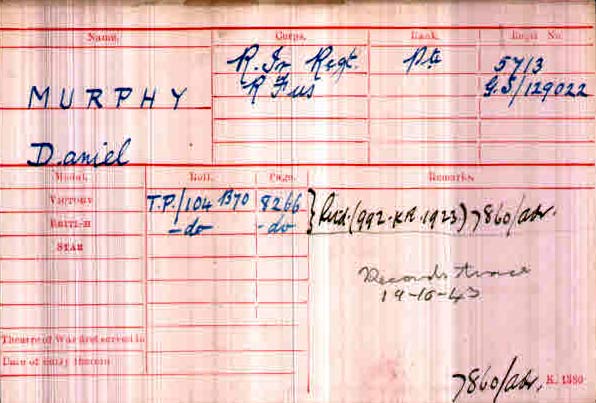 Name. Corps. Rank. Regtl. No.
R. Ir Regt. Pte 5713
MURPHY R Fus G.S/129022
Daniel
Medal. Roll. Page. Remarks.
VICTORY T.P./104 B70 8266 } Retd. (992. KR. 1923) 7860/Adt.
BRITISH -do- -do-
STAR
Records trace
19-10-43
Theatre of War first served in
Date of entry therein
7860/Adt. K. 1380